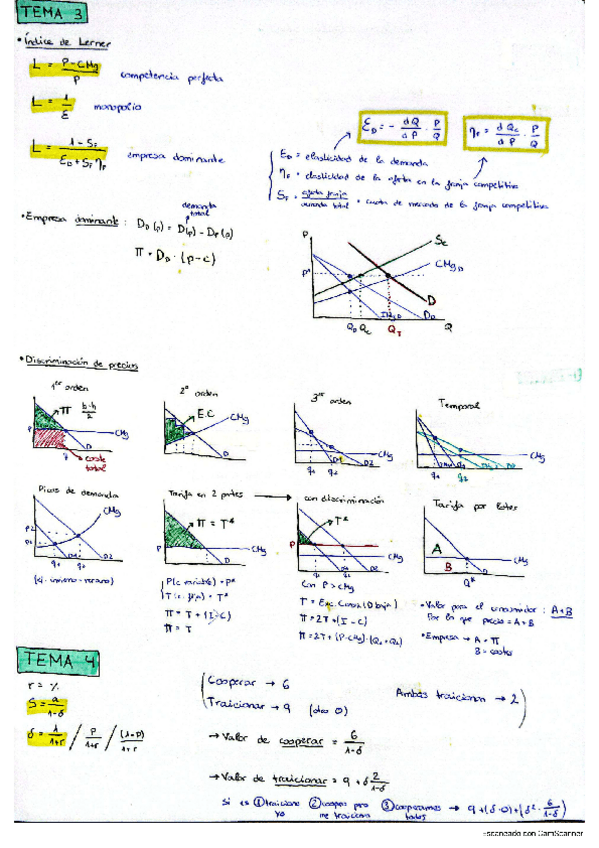 TEMA 3
• Índice de Lerner
L = P - CMg / P competencia perfecta
L = 1 / ε monopolio
L = 1 - SF / ED + SF ηF empresa dominante
ED = - dQ / dP · P / Q
ηF = dQc / dP · P / Q
ED = elasticidad de la demanda
ηF = elasticidad de la oferta en la franja competitiva
SF = oferta franja / demanda total = cuota de mercado de la franja competitiva
• Empresa dominante : DD(p) = D(p) - DF(p)
demanda total
P
π = DD · (p - c)
P
Sc
CMgD
P*
D
IMgD
DD
QD Qc QT Q
• Discriminación de precios
1er orden
π b·h / 2
P
CMg
q
D
coste total
2º orden
E.C
CMg
D
3er orden
CMg
D1 D2
q1 q2
Temporal
CMg
q1 q2
Picos de demanda
CMg
P2
P1
q1 q2
D1 D2
(ej: invierno - verano)
Tarifa en 2 partes →
π = T*
P
CMg
D
P (c. variable) = P*
T (c. fijo) = T*
π = T + (I - C)
π = T
con discriminación
T*
P
CMg
D1 D2
Con P > CMg
T = Exc. Cons. (D baja)
π = 2T + (I - C)
π = 2T + (P - CMg) · (Q1 + Q2)
Tarifa por lotes
A
B
CMg
D
Q*
• Valor para el consumidor : A+B
Por lo que precio = A+B
• Empresa → A = π
B = costes
TEMA 4
r = %
S = a / 1-δ
δ = 1 / 1+r / P / 1+r / (1-P) / 1+r
Cooperar → 6
Traicionar → 9 (otro 0)
Ambas traicionan → 2
→ Valor de cooperar = 6 / 1-δ
→ Valor de traicionar = 9 + δ 2 / 1-δ
Si es ① traiciono yo ② coopero pero me traiciona ③ cooperamos todos → 9 + (δ·0) + (δ² · 6 / 1-δ)
Escaneado con CamScanner